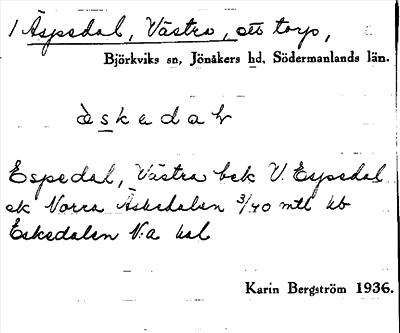 1 Äspedal, Västra, ett torp,
Björkviks sn, Jönåkers hd, Södermanlands län.
èskedaƚv
Espedal, Västra bek V. Espedal
ek Norra Äskedalen 3/40 mtl kb
Eskedalen N:a hsl
Karin Bergström 1936.